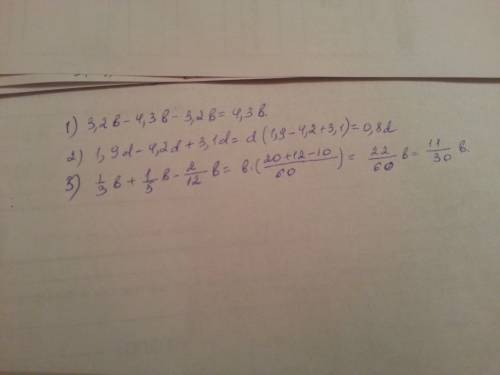 1) 3,2в - 4,3в - 3,2в = 4,3в.
2) 1,9d - 4,2d + 3,1d = d (1,9 - 4,2 + 3,1) = 0,8d
3) 1/3 в + 1/5 в - 2/12 в = в·(20+12-10/60) = 22/60 в = 11/30 в.